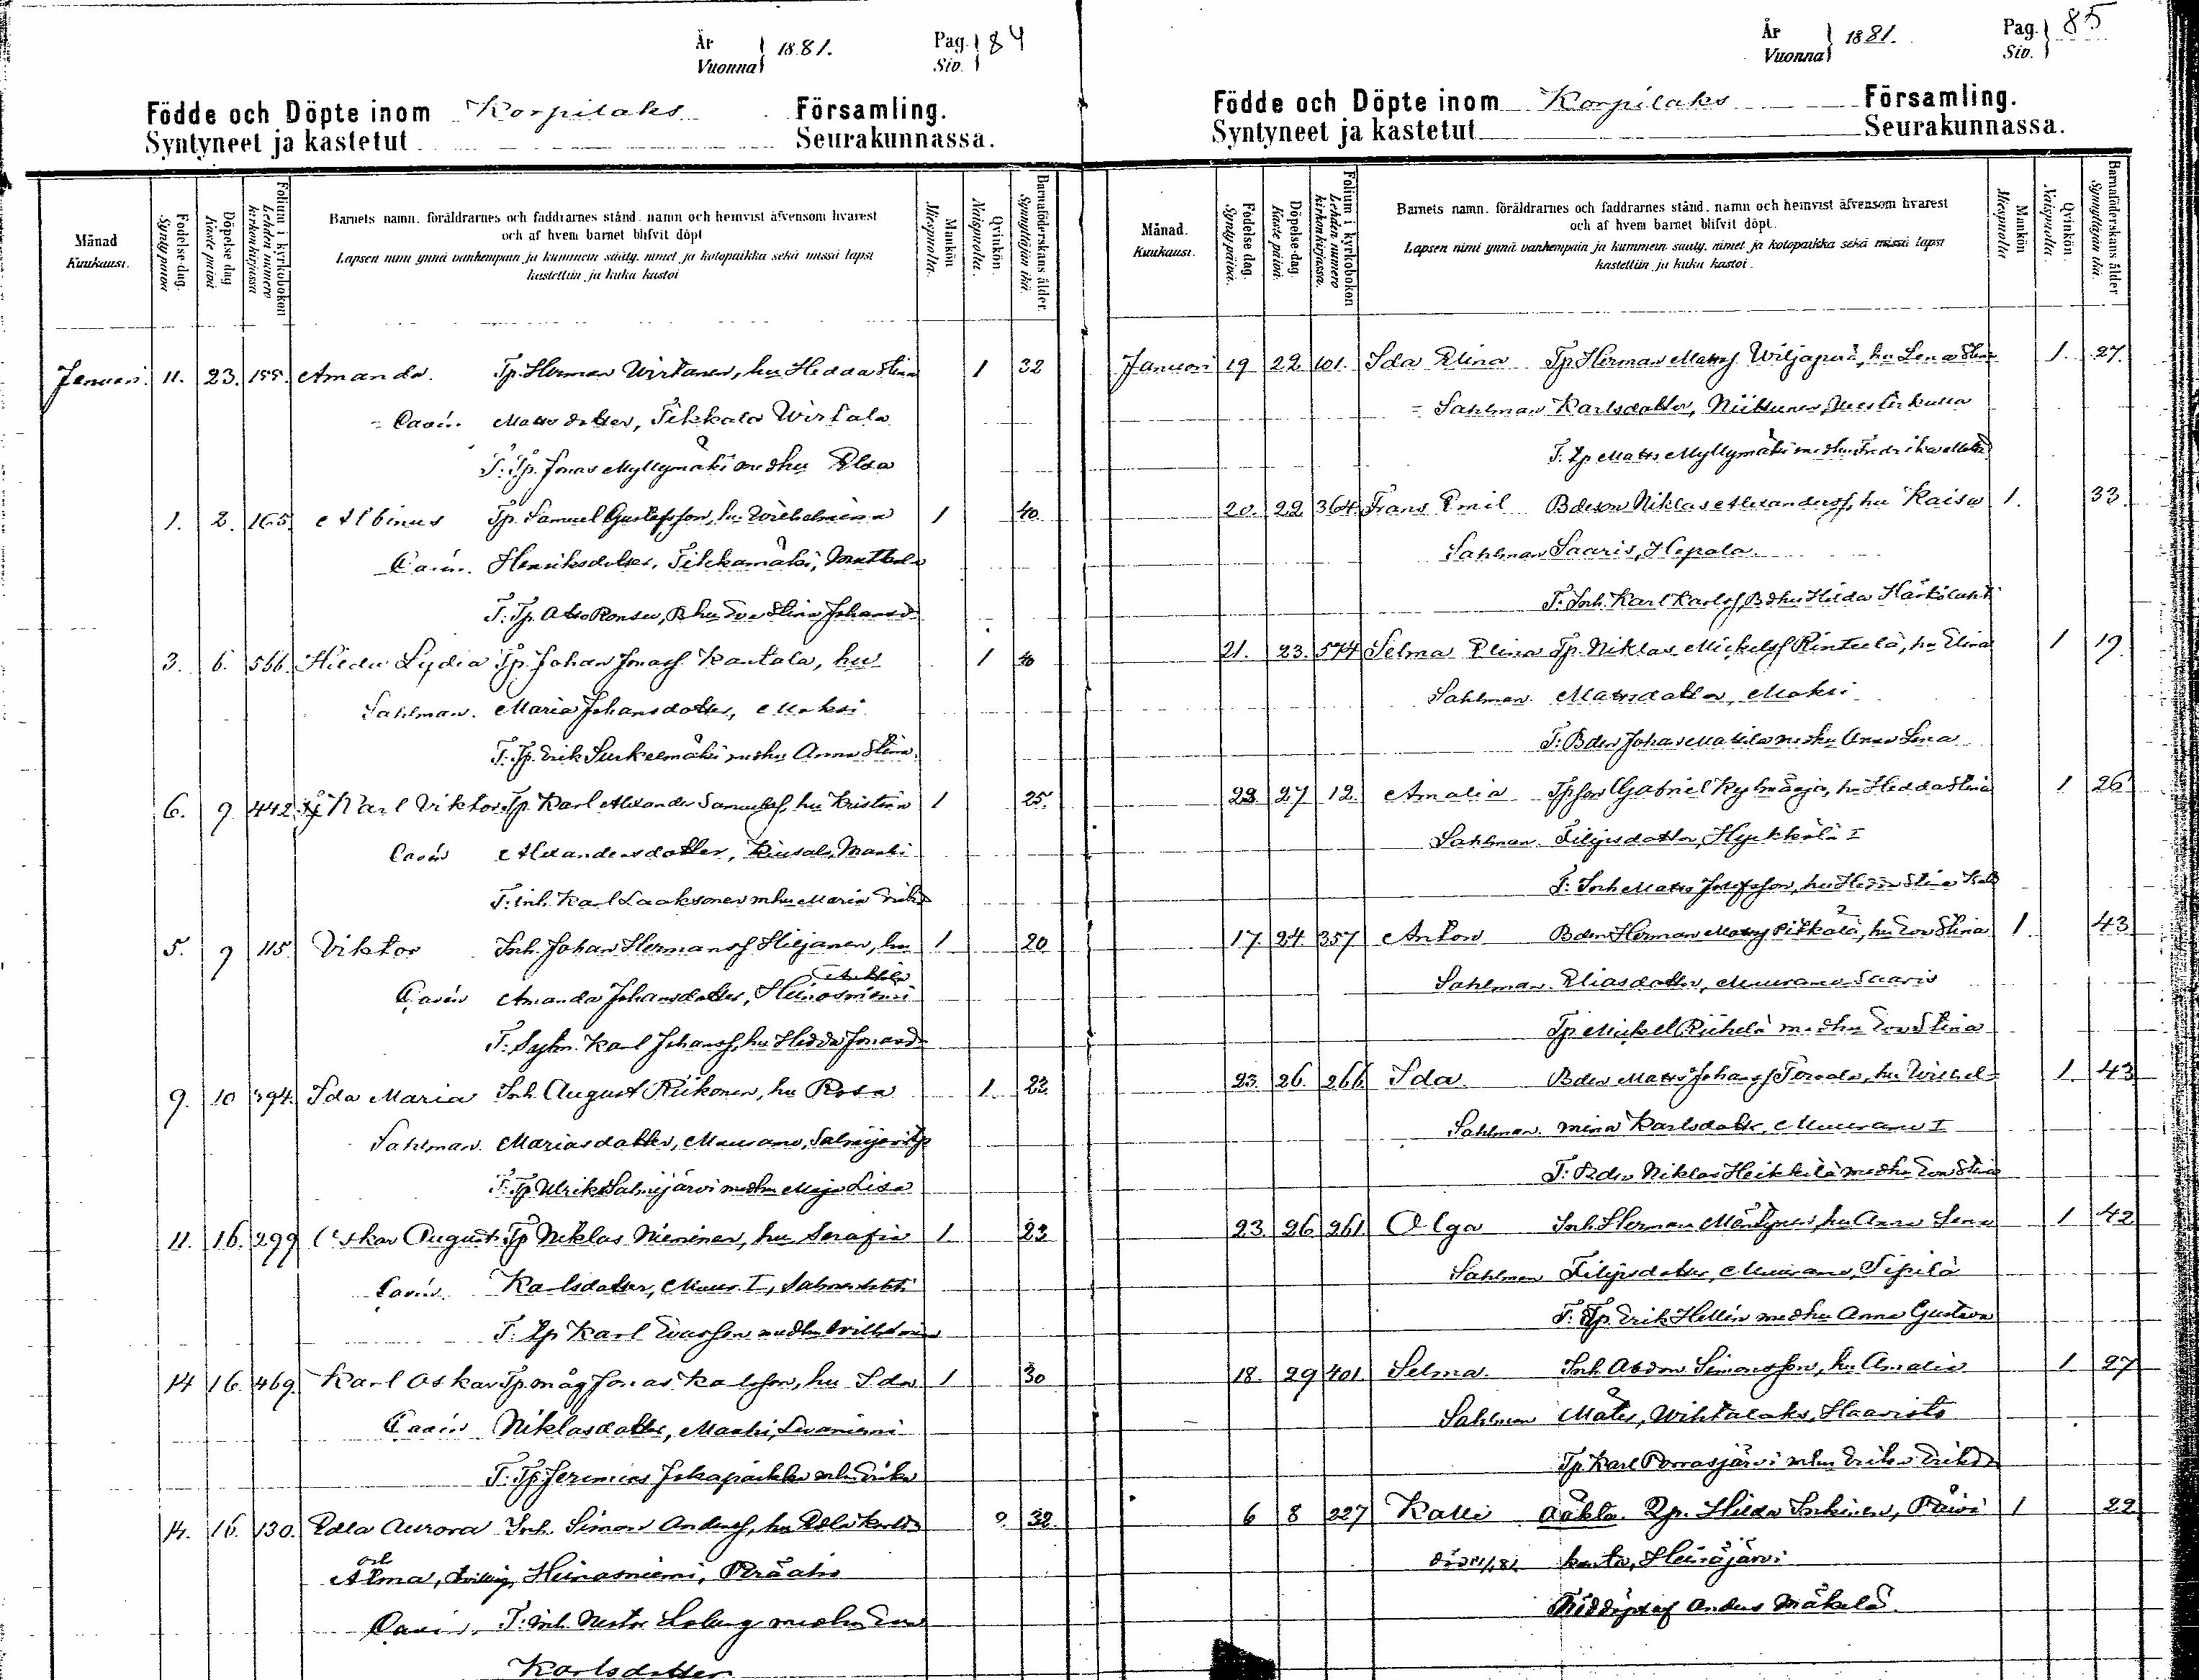 År
Vuonna } 1881.
Pag.
Siv. } 84
Födde och Döpte inom Korpilaks Församling.
Syntyneet ja kastetut Seurakunnassa.
Månad
Kuukausi.
Födelse-dag.
Synty päivä
Döpelse dag
Kaste päivä
Folium i kyrkobokon
Lehden numero kirkonkirjassa
Barnets namn. föräldrarnes och faddrarnes stånd. namn och hemvist äfvensom hvarest
och af hvem barnet blifvit döpt
Lapsen nimi ynnä vanhempain ja kummein sääty, nimet ja kotopaikka sekä missä lapsi
kastettiin ja kuka kastoi
Mankön
Miespuolta.
Qvinkön.
Naispuolta.
Barnaföderskans ålder.
Synnyttäjän ikä.
Januari. 11. 23. 155. Amanda. Tp. Herman Wirtanen, hu Hedda Stina 1 32
Cavén. Mattsdotter, Tikkala Wirtala
F: Tp. Jonas Myllymäki medhu Elsa
1. 2. 165 Albinus Tp. Samuel Gustafsson, hu Wilhelmina 1 40
Cavén. Henriksdotter, Tikkamäki,
F: Tp. Abr Ronsu, hu Eva Stina Johansd
3. 6. 566 Hilda Lydia Tp. Johan Jonass Kantala, hu 1 40
Sahlman. Maria Johansdotter, Moksi
F: Tp. Erik Surkeemäki medhu Anna Stina.
6. 9 442 Karl Viktor Tp. Karl Alexander Samuelss, hu Kristina 1 25.
Cavén Alexandersdotter,
F: inh. Karl Laaksonen mhu Maria
5. 9 115 Viktor Inh. Johan Hermanss Hiljanen, hu 1 20
Cavén Amanda Johansdotter, Heinosniemi
F: Sytn. Karl Johanss, hu Hedda Jonasd
9. 10 394. Ida Maria Inh. August Riikonen, hu Rosa 1. 22
Sahlman. Mariasdotter, Muurame, Salmijärvi
F: Tp Ulrik Salmijärvi medhu Maja Lisa
11. 16. 299 Oskar August Tp Niklas Nieminen, hu Serafia 1 23
Cavén. Karlsdotter, Muur. I,
F: Tp Karl Evasson medhu Wilhelmina
14 16. 469. Karl Oskar Tp. måg Jonas Karlsson, hu Ida 1 30
Cavén Niklasdotter,
F: Tp. Jeremias
14. 16. 130. Edla Aurora Inh. Simon Anderss, hu Edla Karlsd 2 32.
och
Alma, tvilling, Heinosniemi, Peräaho
Cavén. F: inh. Nestor medhu Eva
Karlsdotter
År
Vuonna } 1881.
Pag.
Siv. } 85
Födde och Döpte inom Korpilaks Församling.
Syntyneet ja kastetut Seurakunnassa.
Månad.
Kuukausi.
Födelse dag.
Synty päivä.
Döpelse-dag.
Kaste päivä.
Folium i kyrkobokon
Lehden numero kirkonkirjassa.
Barnets namn. föräldrarnes och faddrarnes stånd. namn och heinvist äfvensom hvarest
och af hvem barnet blifvit döpt.
Lapsen nimi ynnä vanhempain ja kummein sääty. nimet ja kotopaikka sekä missä lapsi
kastettiin ja kuka kastoi.
Mankön
Miespuolta
Qvinkön.
Naispuolta.
Barnaföderskans ålder
Synnyttäjän ikä.
Januari 19 22 101. Ida Elina Tp Herman Mattss Wiljaperä, hu Lena Stina 1. 27.
Sahlman Karlsdotter, Niittunen,
F. Tp Matts Myllymäki medhu Fredrika
20. 22 364 Frans Emil Bdeson Niklas Alexanderss, hu Kaisa 1. 33.
Sahlman Saaris, Hepola.
F: Inh. Karl Karlss, Bdhu Hilda Härkölahti
21. 23. 574 Selma Elina Tp. Niklas Mickelss Rinteelä, hu Elina 1 19
Sahlman. Mattsdotter, Moksi
F: Bden Johan Mattila medhu Anna Lena
23 27 12. Amalia Tpson Gabriel Kylmäoja, hu Hedda Stina 1 26
Sahlman. Filipsdotter, Hyrkkälä I
F: Inh Matts Josefsson, hu Hedda Stina
17. 24. 357 Anton Bden Herman Mattss Pitkälä, hu Eva Stina 1. 43
Sahlman. Eliasdotter, Muurame Saaris
Tp Mickel Riihelä medhu Eva Stina
23. 26. 266 Ida Bden Matts Johanss Torvola, hu Wilhel- 1. 43
Sahlman. mina Karlsdotter, Muurame I
F: Bden Niklas Heikkilä medhu Eva Stina
23. 26 261. Olga Inh Herman Mäntynen, hu Anna Lena 1 42
Sahlman Filipsdotter, Muurame, Sipilä
F: Tp. Erik Hellén medhu Anna Gustava
18. 29 401 Selma. Inh. Abdon Simonsson, hu Amalia 1 27
Sahlman Matts, Wihtalaks, Haaristo
Tp. Karl Porrasjärvi mhu Erika Eriksd
6 8 227 Kalli Oäkta. Tp. Hilda Inkinen, Päivi 1 22
kunta, Heinäjärvi
Nöddöpt af Anders Mäkelä.